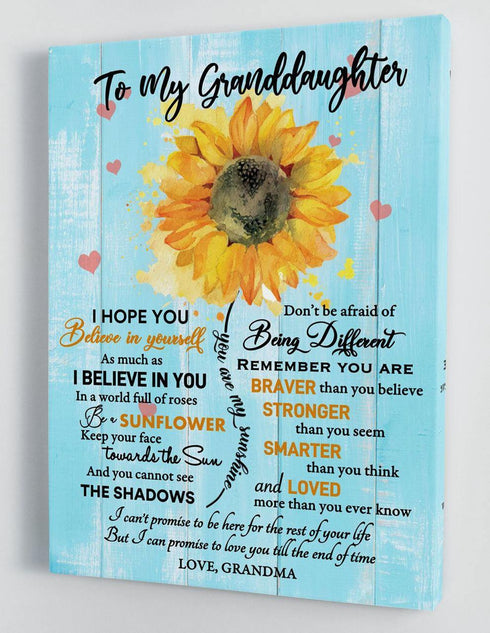 To My Granddaughter
I HOPE YOU
Believe in yourself
As much as
I BELIEVE IN YOU
In a world full of roses
Be a SUNFLOWER
Keep your face
towards the Sun
And you cannot see
THE SHADOWS
you are my sunshine
Don't be afraid of
Being Different
REMEMBER YOU ARE
BRAVER than you believe
STRONGER
than you seem
SMARTER
than you think
and LOVED
more than you ever know
I can't promise to be here for the rest of your life
But I can promise to love you till the end of time
LOVE, GRANDMA